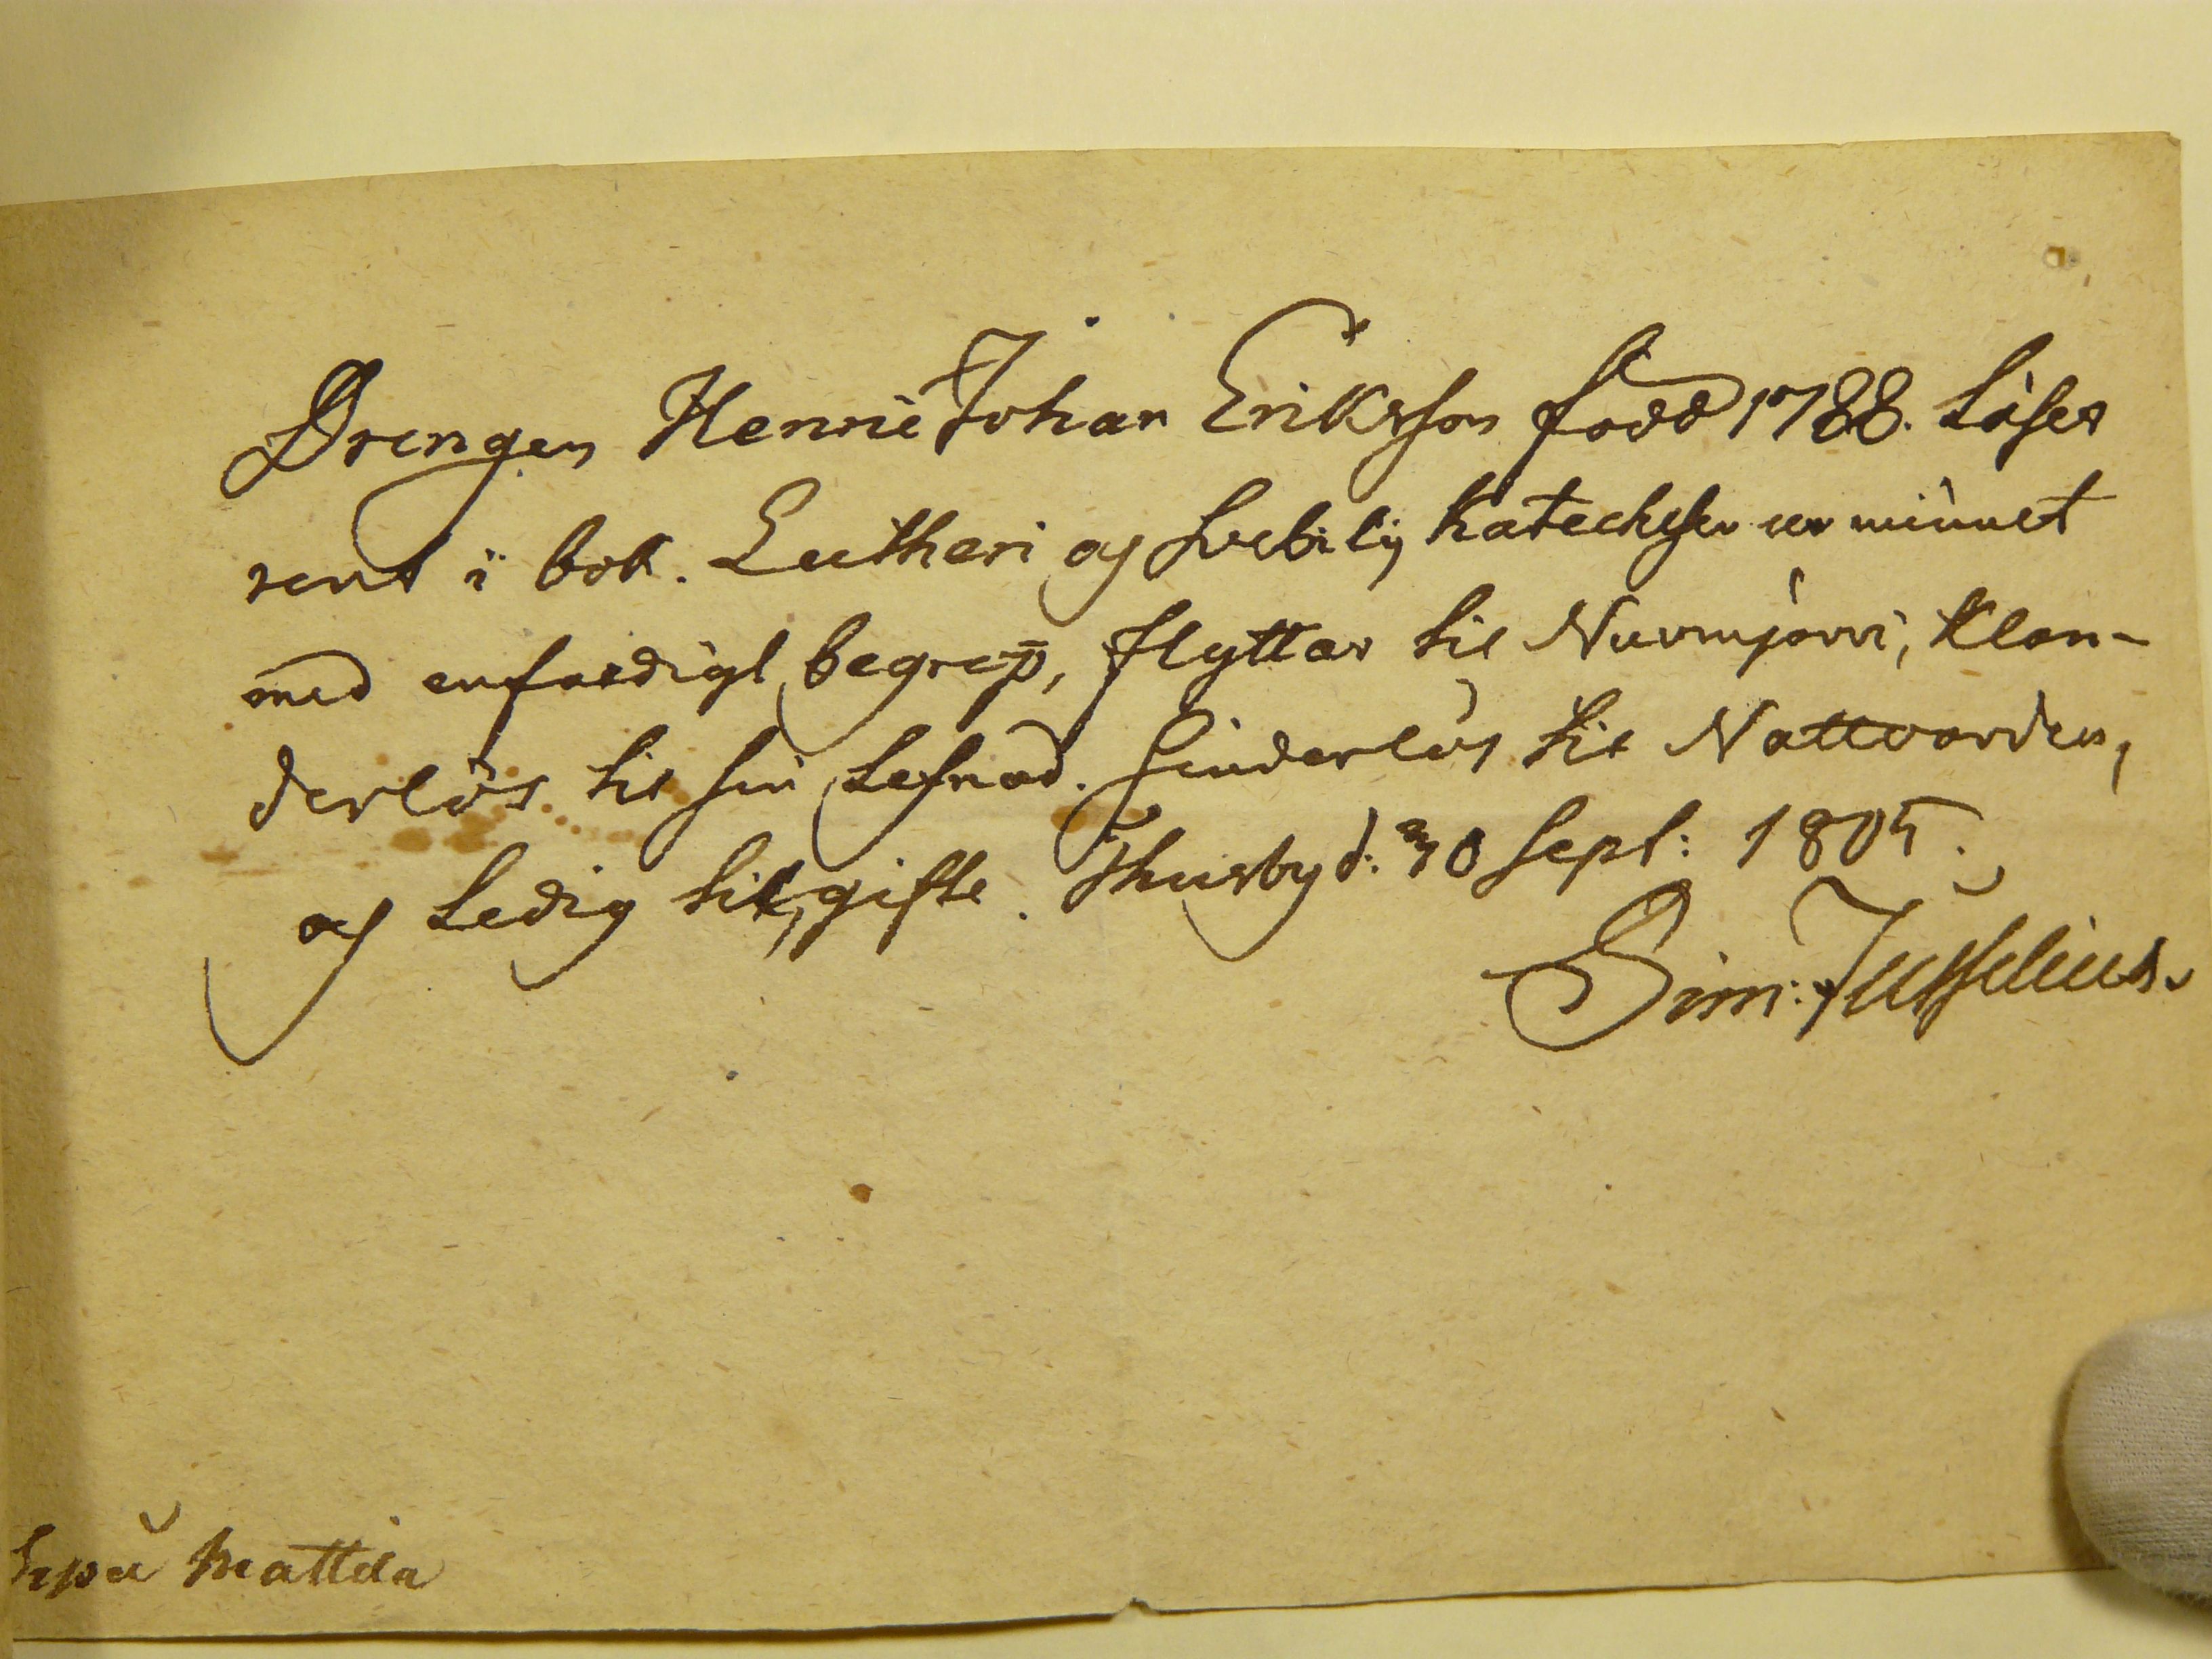 Drengen Henric Johan Eriksson född 1788. Läser
rent i bok. Lutheri och Svebilij Katecheser ur minnet
med enfaldigt begrep, flyttar til Nurmjärvi, klan-
derlös til sin Lefnad. hinderlös til Nattvarden,
och Ledig til gifte. Thusby d: 30 Sept: 1805.
Sim: Jusselius.
Mattila